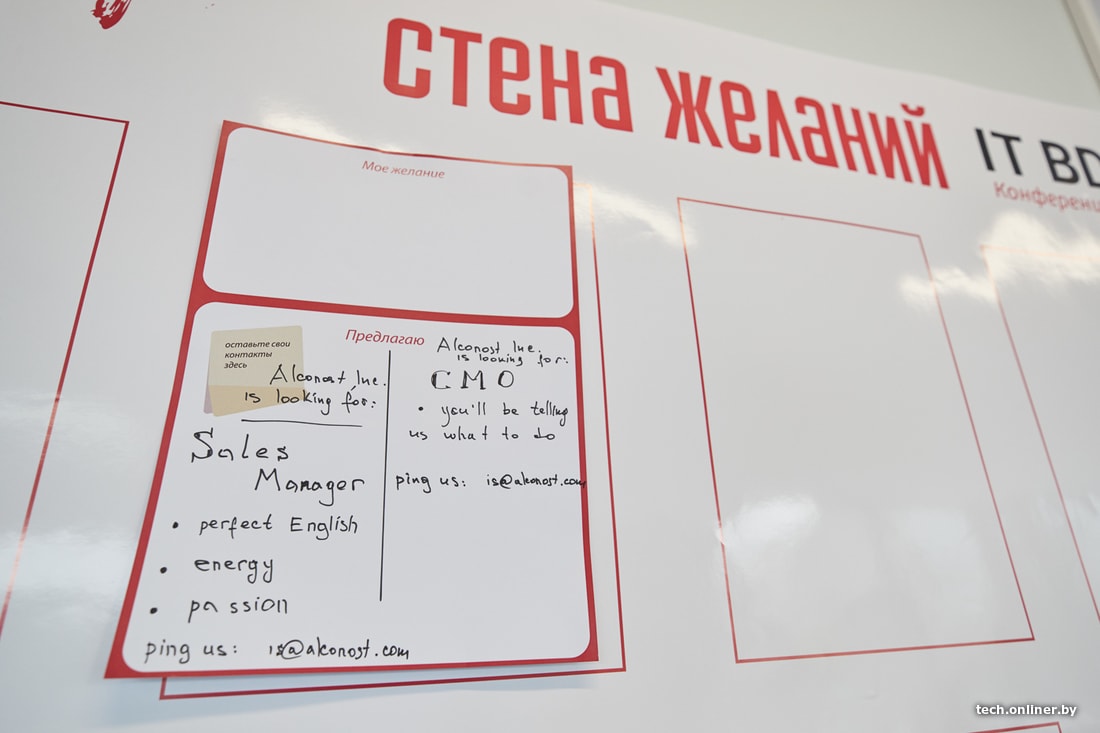 стена желаний
IT BD
Конференц
Мое желание
Предлагаю
оставьте свои
контакты
здесь
Alconost Inc.
is looking for:
Sales
Manager
• perfect English
• energy
• passion
ping us: is@alconost.com
Alconost Inc.
is looking for:
CMO
• you'll be telling
us what to do
ping us: is@alconost.com
tech.onliner.by